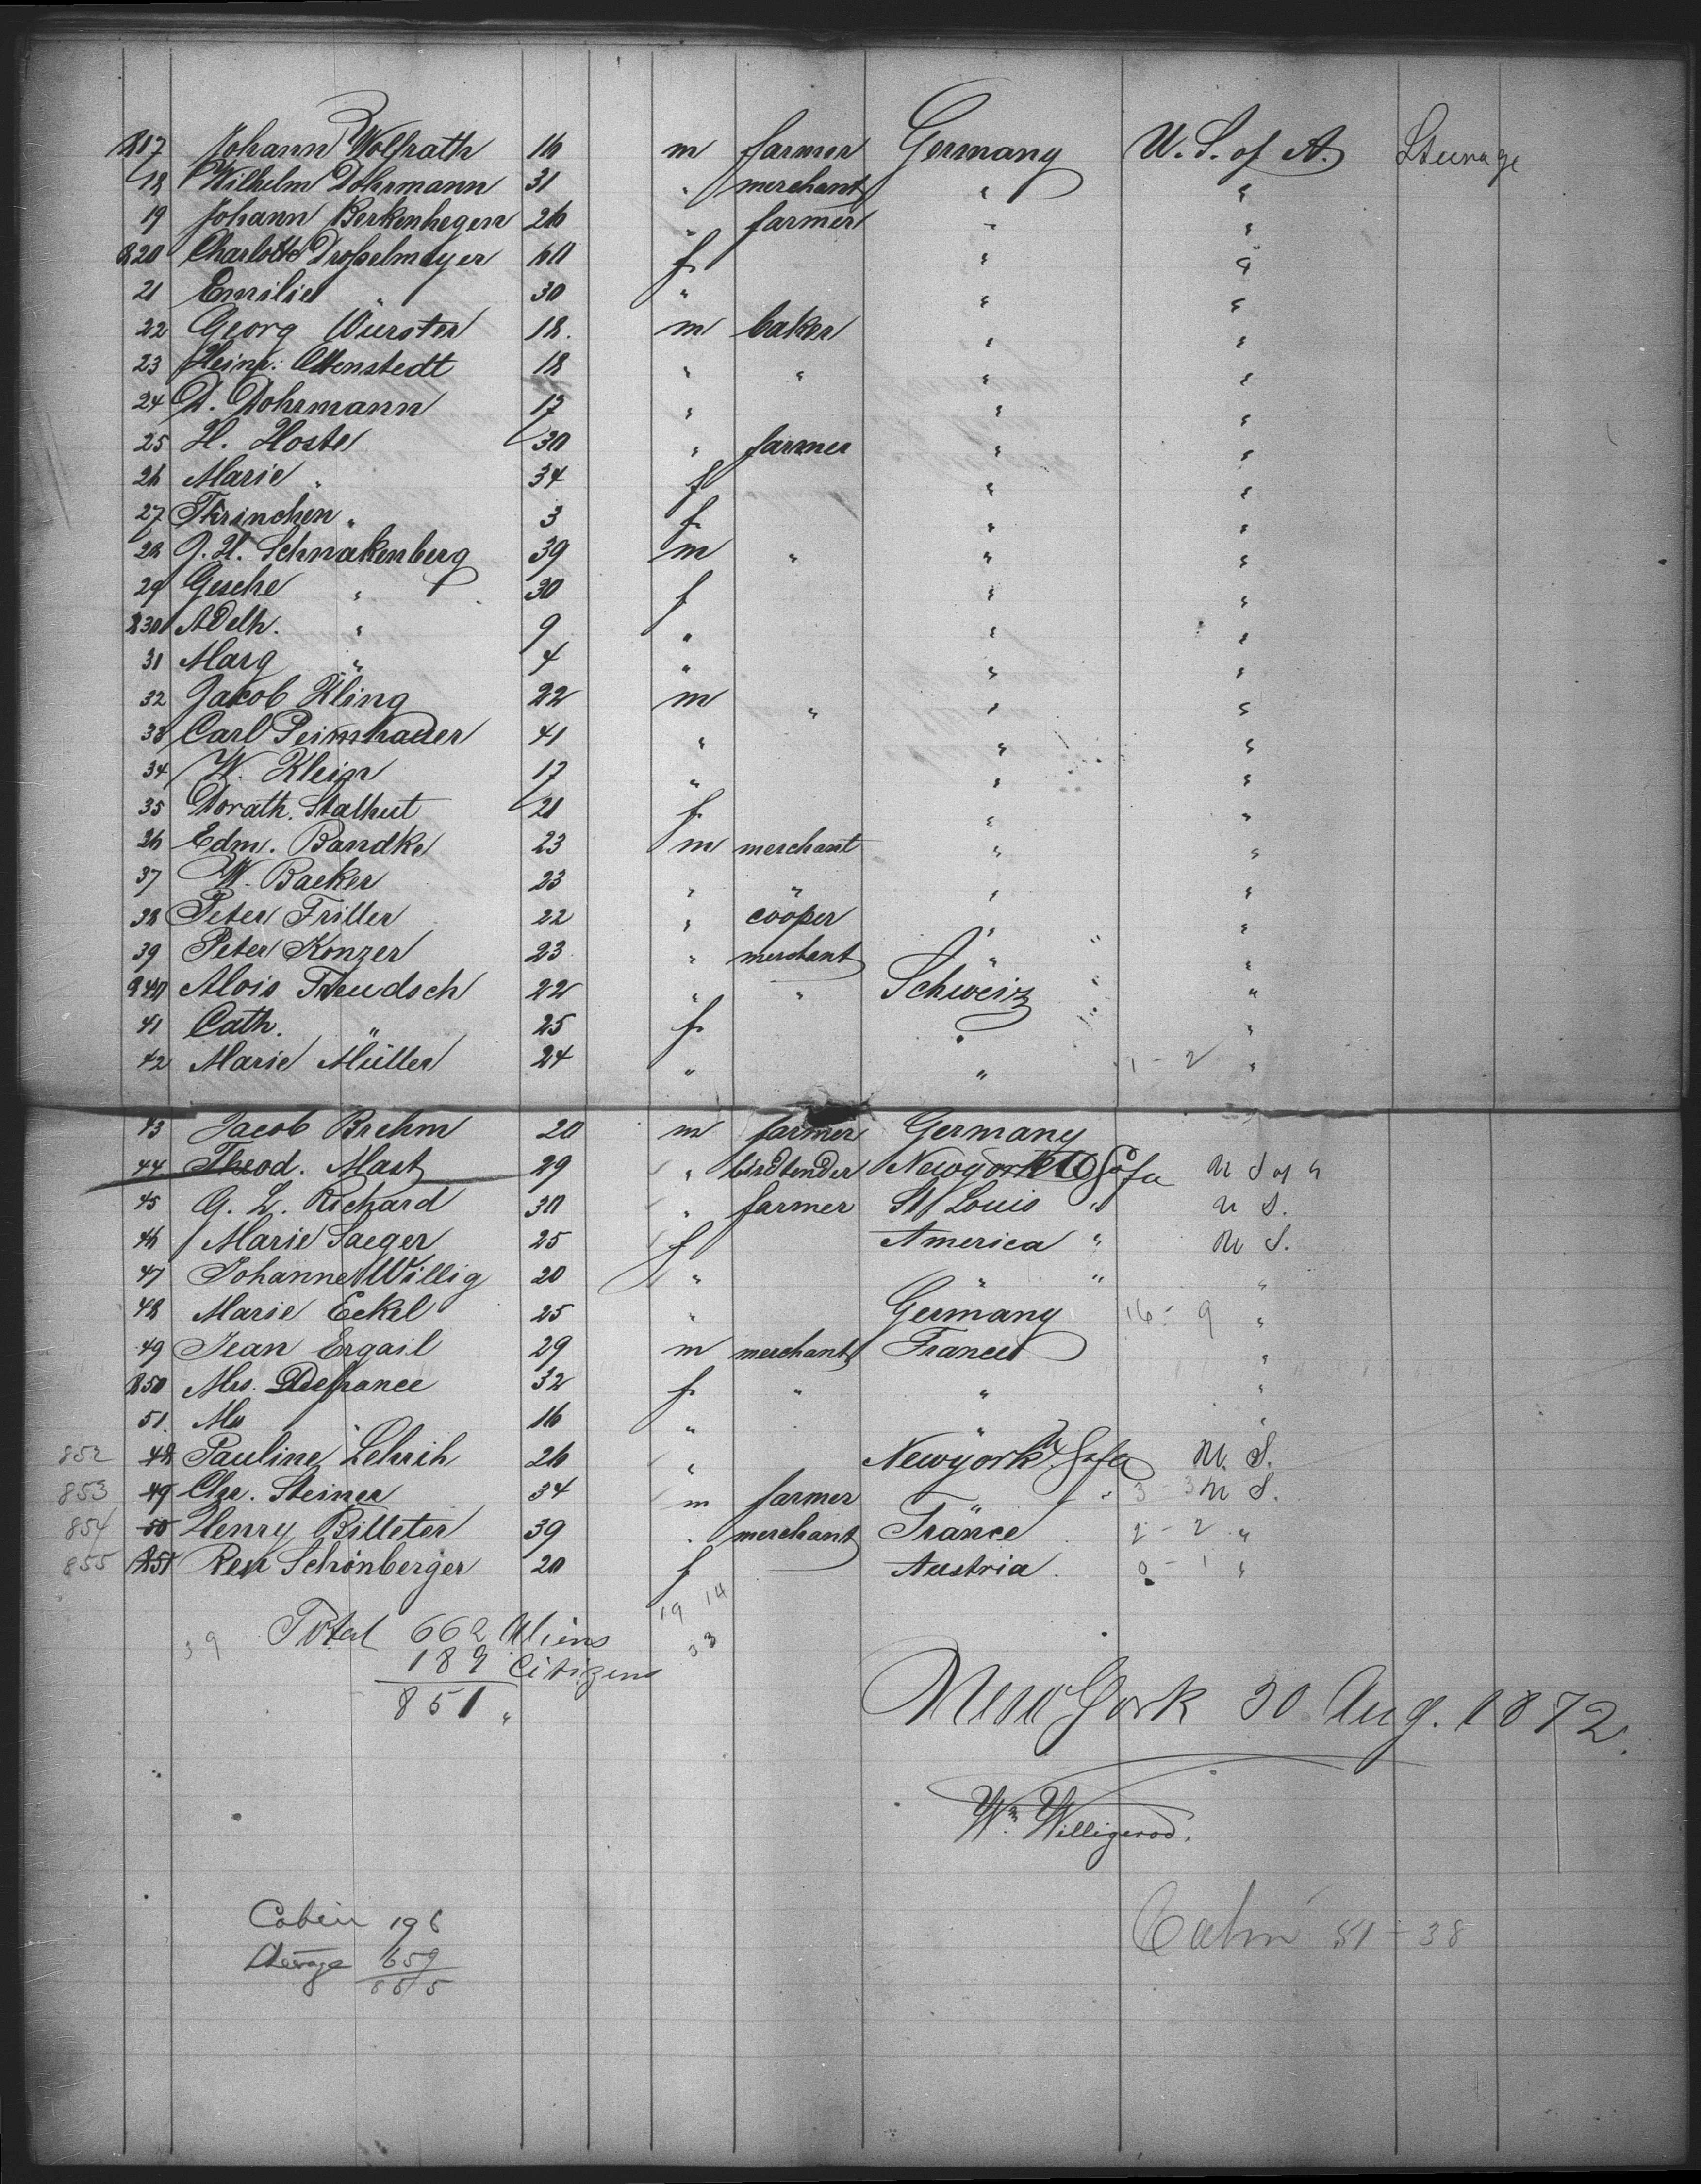 817 Johann Wolfrath 16 m farmer Germany U. S. of A. Steerage
18 Wilhelm Dohrmann 31 " merchant " "
19 Johann Berkenhegen 26 " farmer " "
820 Charlotte Droßelmeyer 60 f " "
21 Emilie " 30 " " "
22 Georg Wurster 18. m baker " "
23 Heinr: Ottenstedt 18 " " " "
24 D. Dohrmann 17 " " "
25 H. Hoste 30 " farmer " "
26 Marie " 34 f " "
27 Thrinchen " 3 f " "
28 J. H. Schnakenberg 39 m " " "
29 Gesche " 30 f " "
830 Adelh. " 9 " " "
31 Marg " 4 " " "
32 Jacob Kling 22 m " " "
33 Carl 41 " " "
34 W. Klein 17 " " "
35 Dorath. Stalhut 21 f " "
36 Edm. Bandke 23 m merchant " "
37 W. Backer 23 " " " "
38 Peter Friller 22 " cooper " "
39 Peter Konzer 23 " merchant " "
840 Alois 22 " " Schweiz "
41 Cath. " 25 f " "
42 Marie Müller 24 " " 1 - 2 "
43 Jacob Brehm 20 m farmer Germany
44 Theod. Mast 29 " Newyork U S of a U S of a
45 G. L. Richard 30 " farmer St Louis " U S.
46 Marie Saeger 25 f America " U S.
47 Johanne Willig 20 " " " "
48 Marie Eckel 25 " Germany 16 - 9 "
49 Jean Ergail 29 m merchant France "
850 Mrs. Defrance 32 f " " "
51. Ms " 16 " " "
852 48 Pauline Lehrih 26 " Newyork U S of a U. S.
853 49 Chr. Steiner 34 m farmer " " 3 - 3 U S.
854 50 Henry Billeter 39 " merchant France 2 - 2 "
855 851 Schönberger 20 f Austria. 0 - 1 "
19 14
39 Total 662 Aliens 33
189 Citizens
851 "
New York 30 Aug. 1872.
Wm Willigerod.
Cabin 196
Steerage 659
855
Cabin 51 - 38